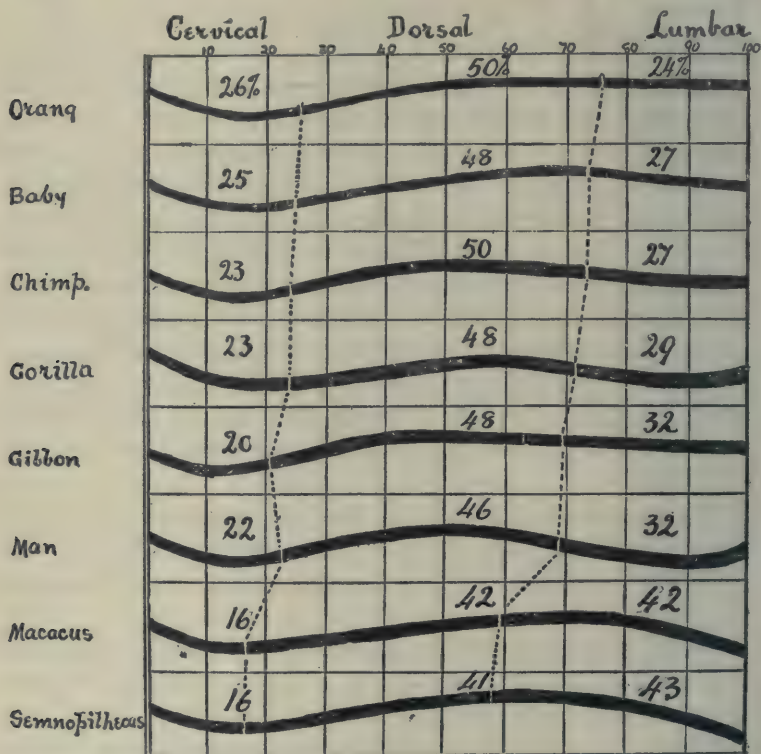 Cervical Dorsal Lumbar
10 20 30 40 50 60 70 80 90 100
Orang 26% 50% 24%
Baby 25 48 27
Chimp. 23 50 27
Gorilla 23 48 29
Gibbon 20 48 32
Man 22 46 32
Macacus 16 42 42
Semnopithecus 16 41 43